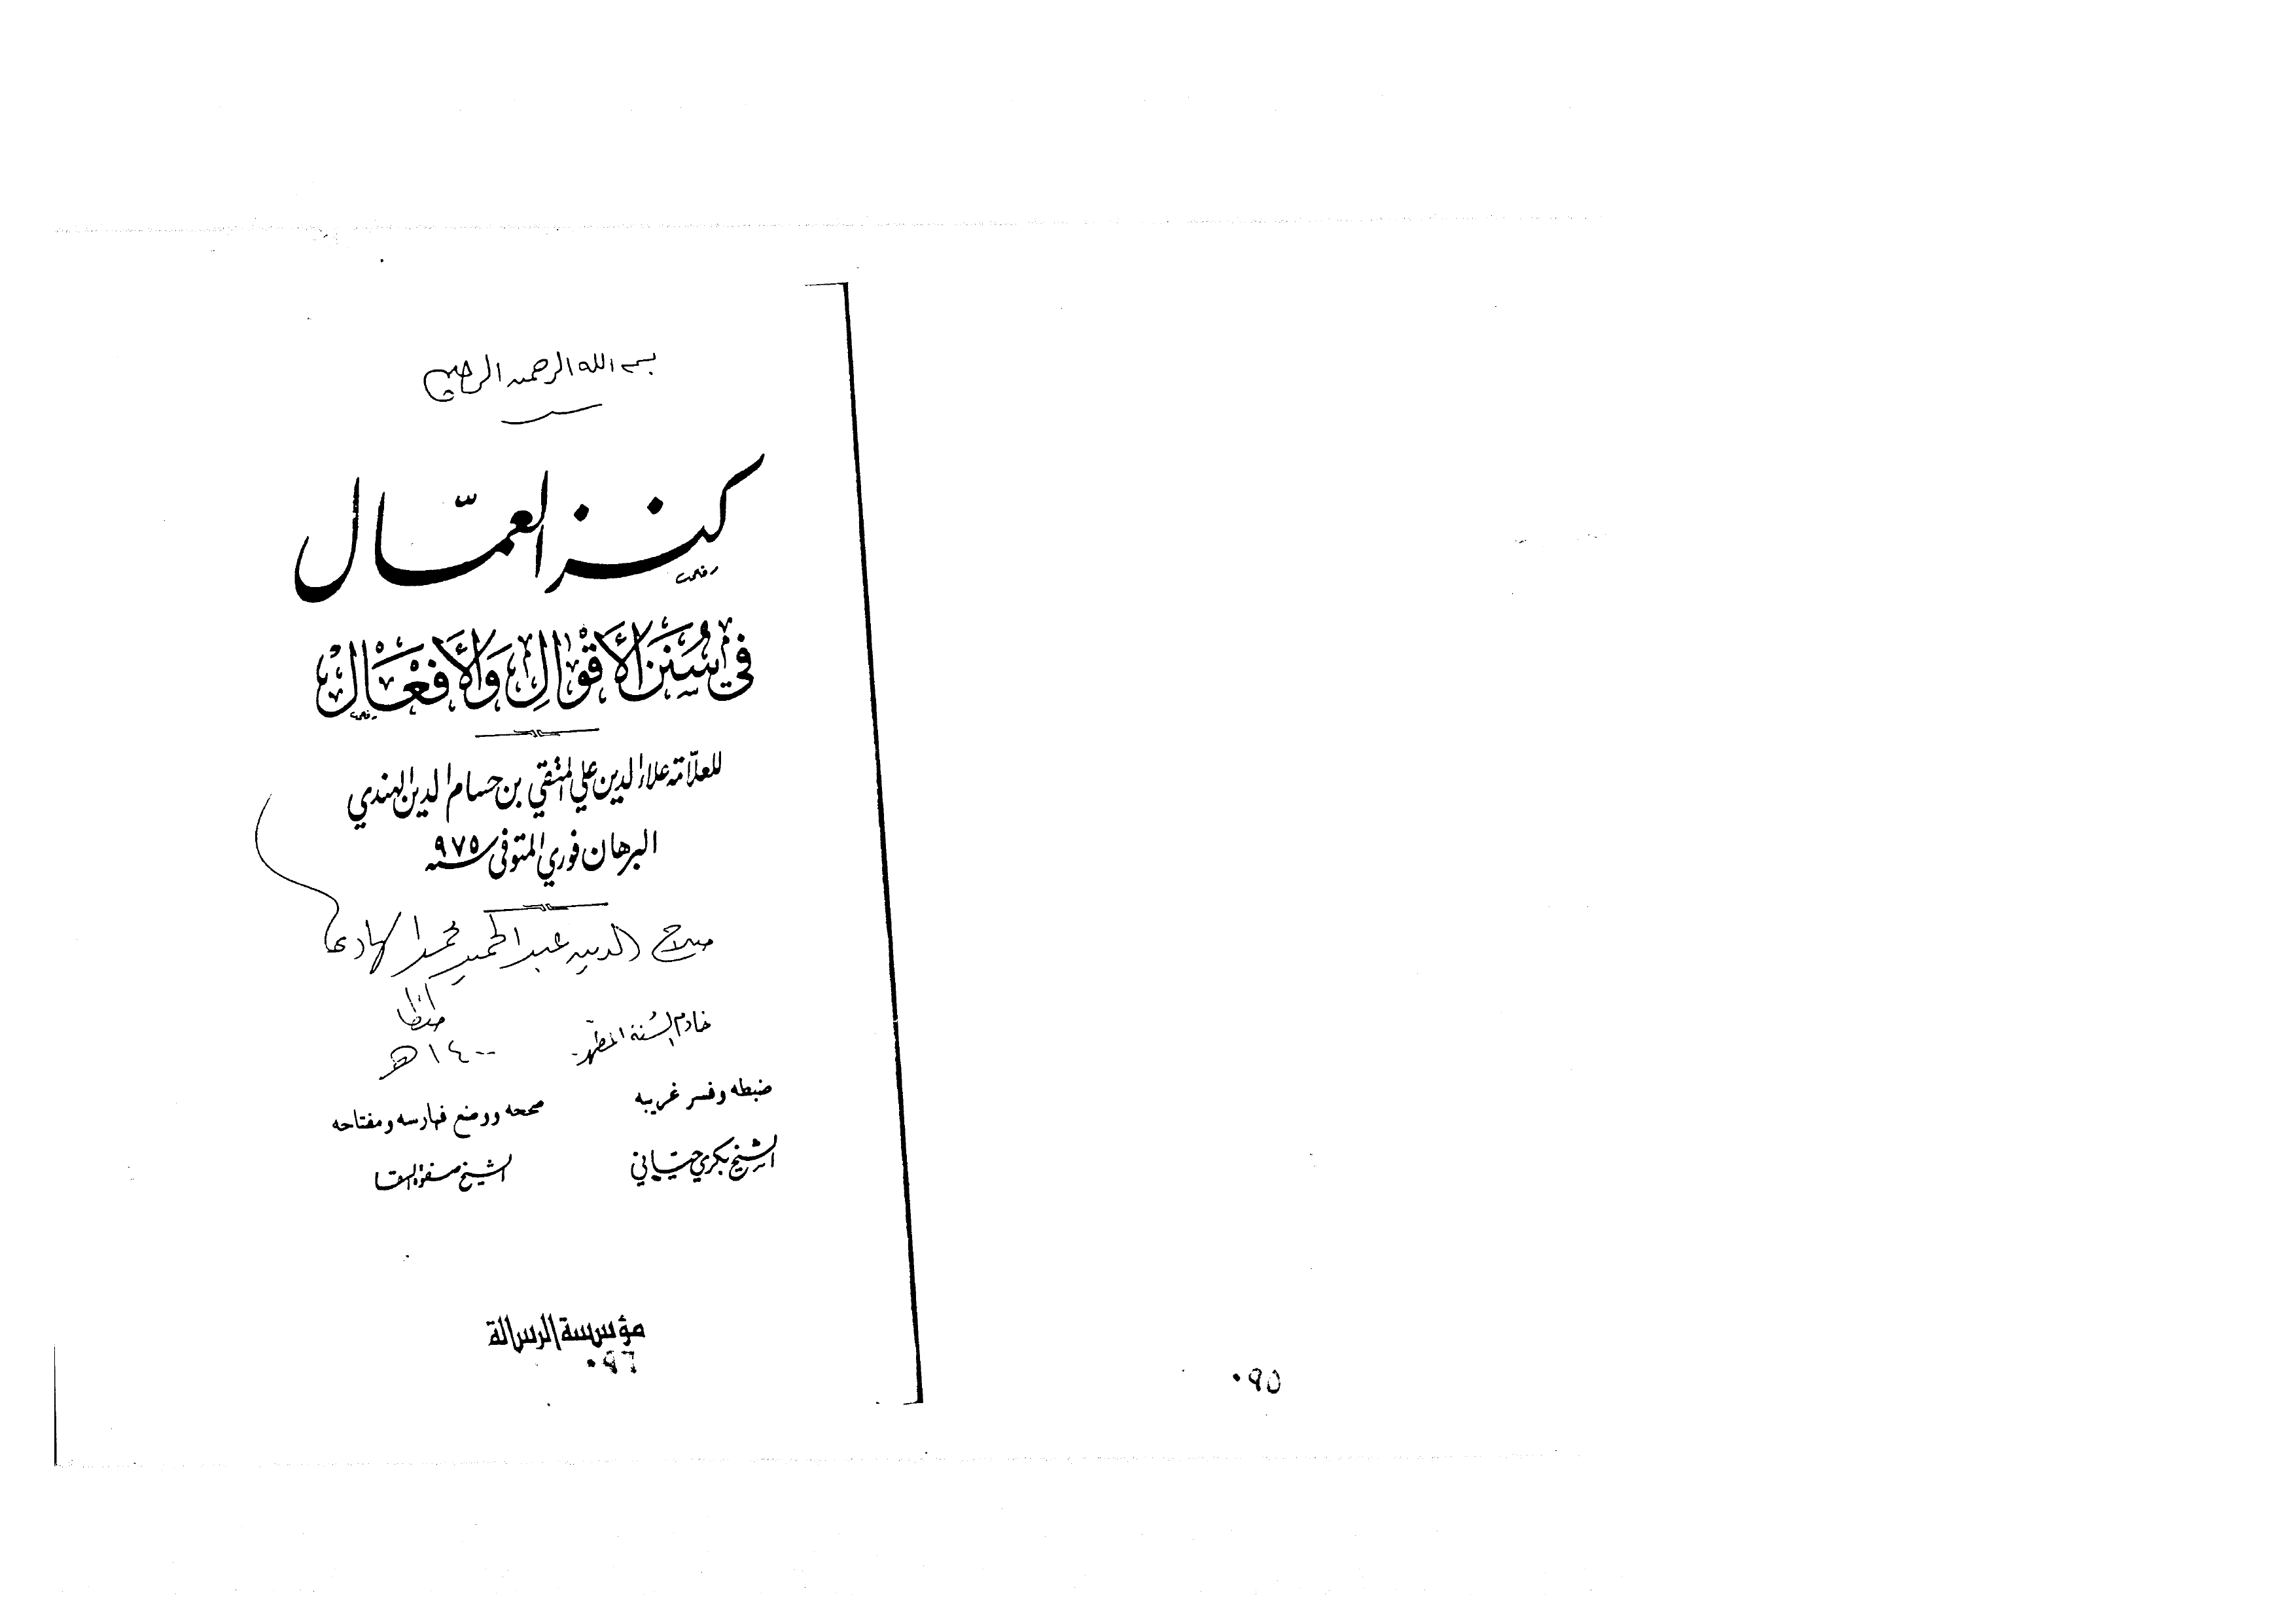 بسم الله الرحمن الرحيم
كنز العمّال
في سُنَنِ الأَقْوَالِ وَالأَفْعَال
للعلّامة علاء الدين علي المتقي بن حسام الدين الهندي
البرهان فوري المتوفى سنة ٩٧٥
صلاح الدين عبد الحميد محمد الهادى
طنطا
خادم السُنة المطهّرة
١٤٠٠ هـ
ضبطه وفسر غريبه
صححه ووضع فهارسه ومفتاحه
الشيخ بكري حيّاني
الشيخ صفوة السقا
مؤسسة الرسالة
٠٩٦
٠٩٥